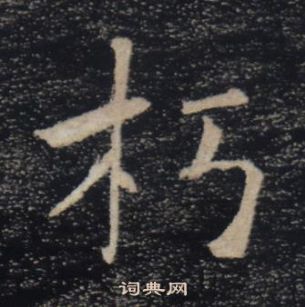 朽
词典网